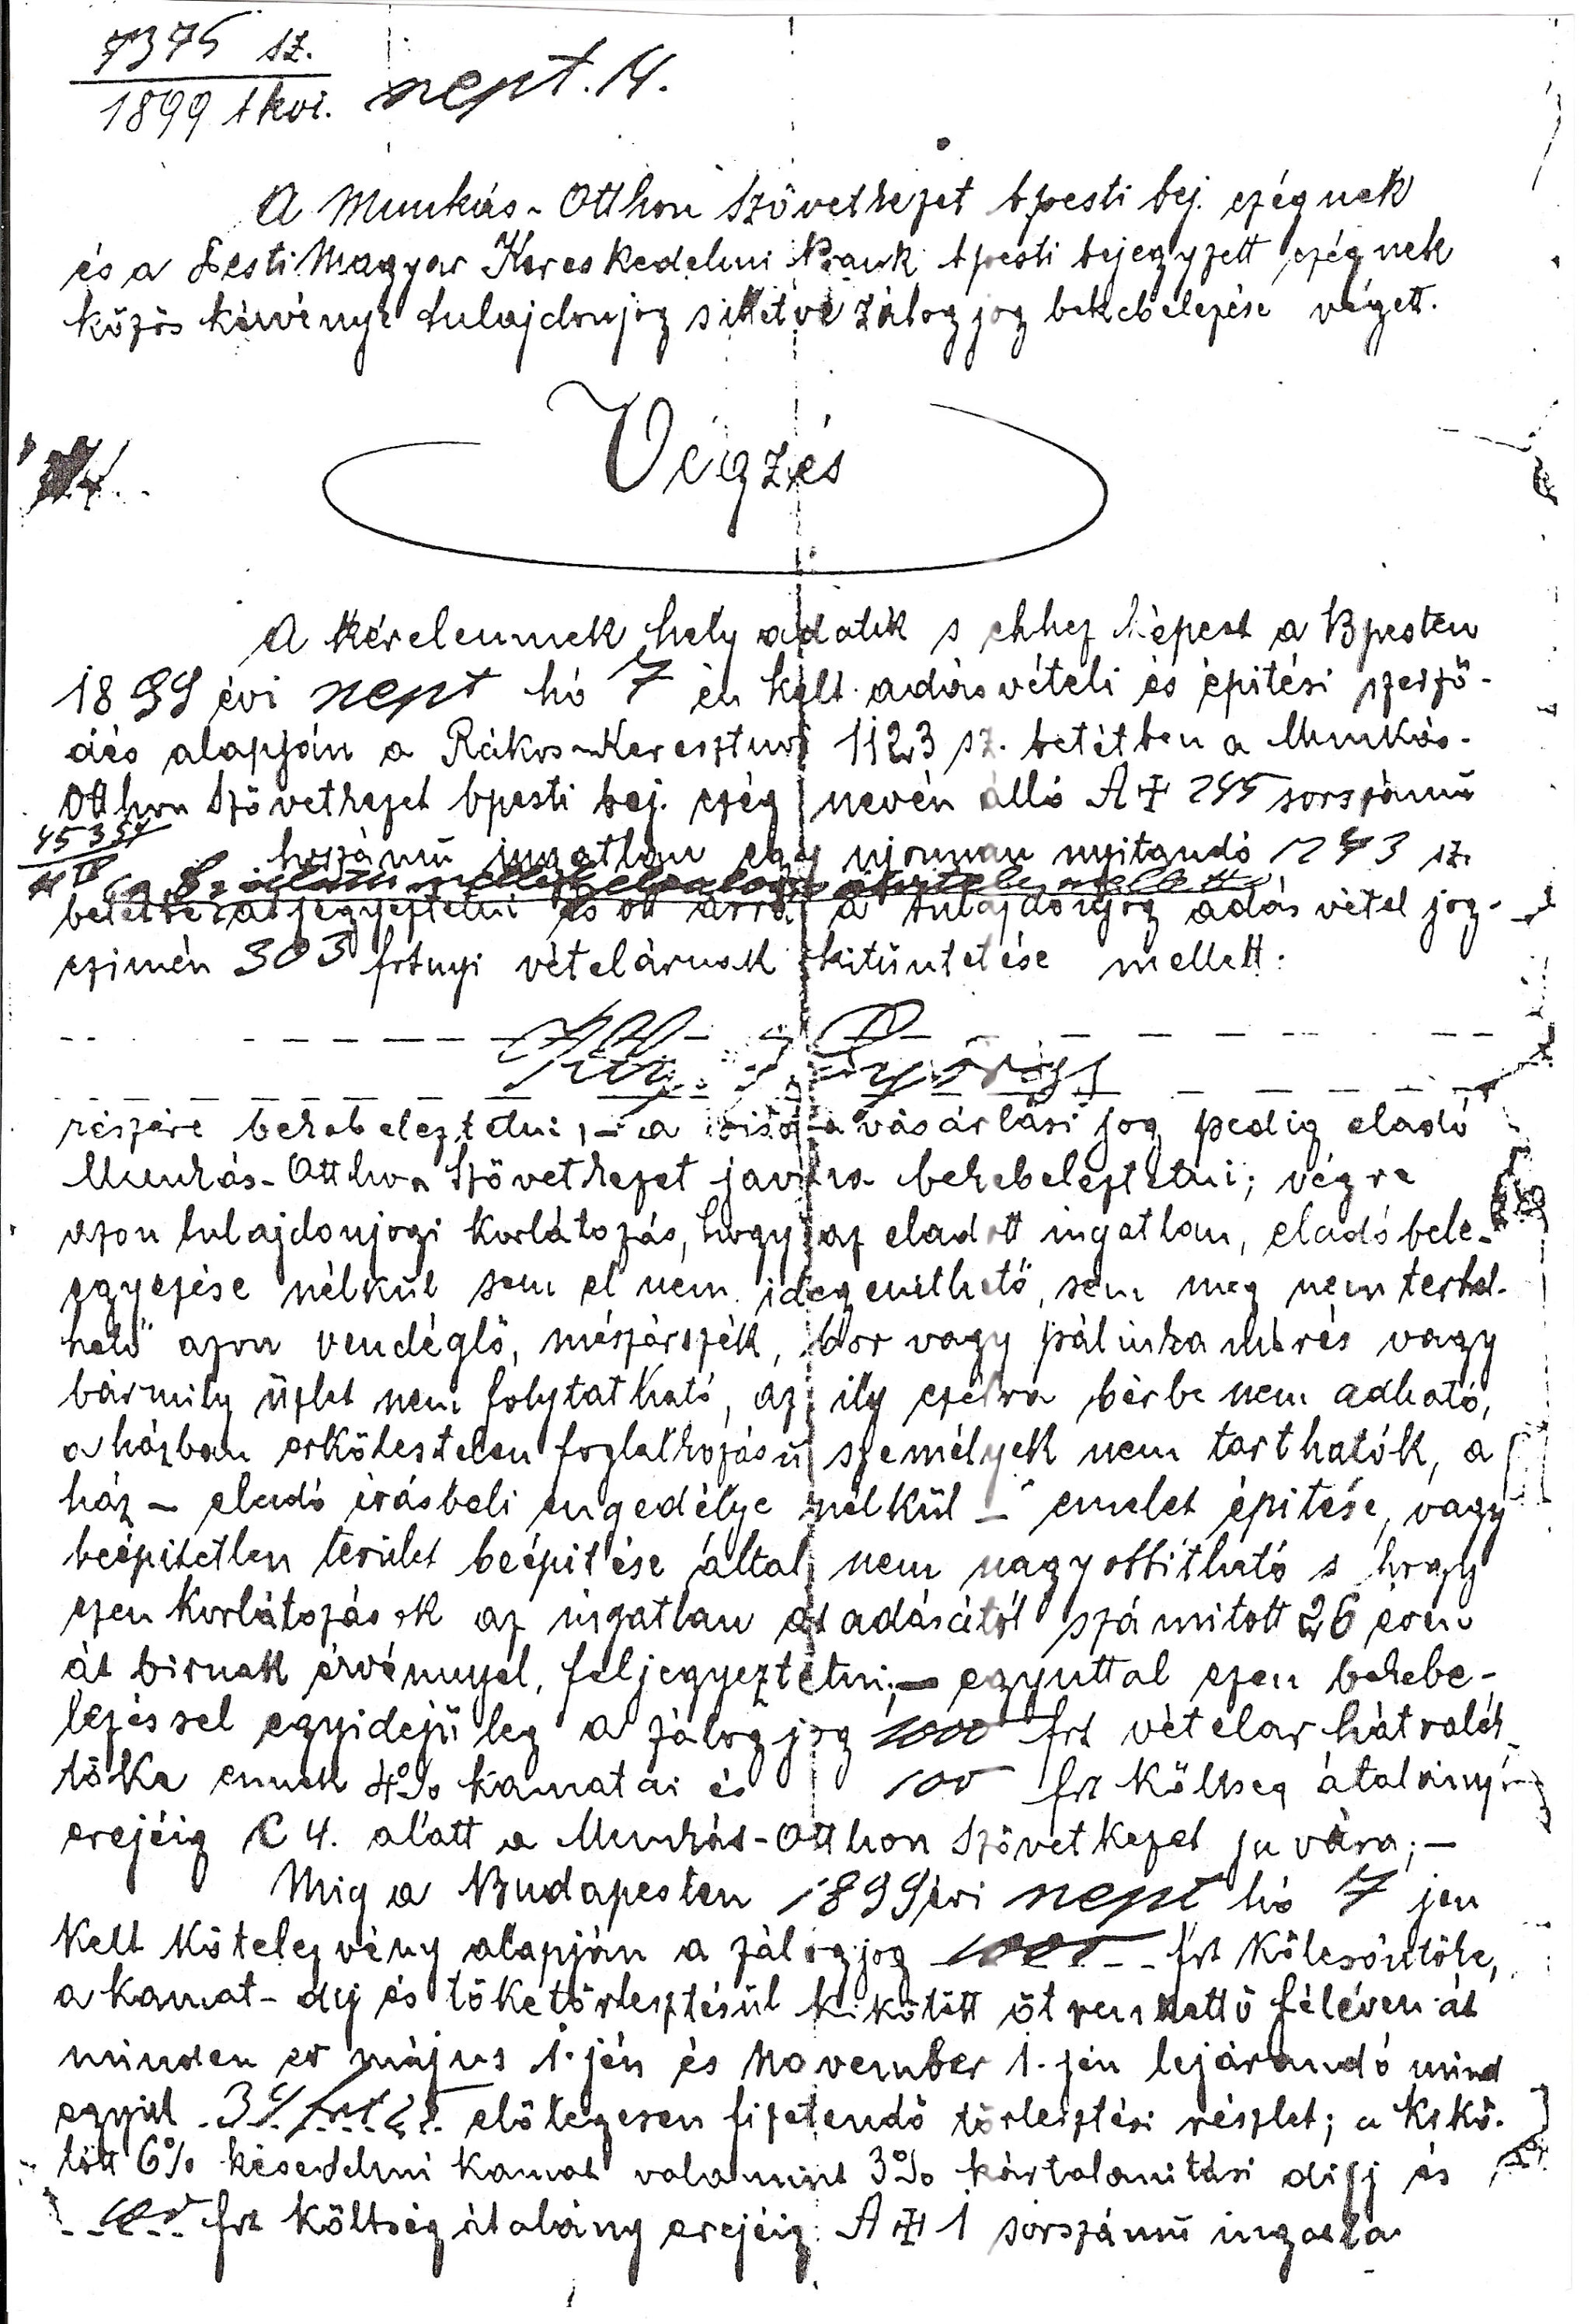 7375 sz.
1899 tkvi. sept. 14.
A Munkás-Otthon Szövetkezet bpesti bej. czégnek
és a Pesti Magyar Kereskedelmi Bank bpesti bejegyzett czégnek
közös kérvénye tulajdonjog s illetve zálogjog bekebelezése végett.
Végzés
A kérelemnek hely adatik s ehhez képest a Bpesten
1899 évi sept hó 7 én kelt adásvételi és épitési szerző-
dés alapján a Rákos-Kereszturi 1123 sz. betétben a Munkás-
Otthon Szövetkezet bpesti bej. czég nevén álló A I 245 sorszámú
hrszámú ingatlan egy ujonnan nyitandó 1243 sz.
betétbe átjegyeztetni és ott arra a tulajdonjog adás vétel jog-
czimén 303 frtnyi vételárnak kitüntetése mellett:
részére bekebeleztetni, – a vissza vásárlási jog pedig eladó
Munkás-Otthon Szövetkezet javára bekebeleztetni; végre
azon tulajdonjogi korlátozás, hogy az eladott ingatlan, eladó bele-
egyezése nélkül sem el nem idegenithető, sem meg nem terhel-
hető azon vendéglő, mészárszék, bor vagy pálinkamérés vagy
bármily üzlet nem folytatható, az ily czélra bérbe nem adható,
a házban erkölcstelen foglalkozású személyek nem tarthatók, a
ház – eladó irásbeli engedélye nélkül – emelet épitése, vagy
beépitetlen terület beépitése által nem nagyobbitható s hogy
ezen korlátozások az ingatlan átadásától számitott 26 éven
át birnak érvénnyel, feljegyeztetni; – egyuttal ezen bekebe-
lezéssel egyidejüleg a zálogjog 1000 frt vételár hátralék
tőke ennek 4% kamatai és 100 frt költség átalány
erejéig C 4. alatt a Munkás-Otthon Szövetkezet javára; –
Mig a Budapesten 1899 évi sept hó 7 jen
kelt kötelezvény alapján a zálogjog frt kölcsöntőke,
a kamat- dij és tőketörlesztésül kikötött ötvenkettő féléven át
minden év május 1.jén és November 1.jén lejárandó mind
egyút előlegesen fizetendő törlesztési részlet; a kikö-
tött 6% késedelmi kamat valamint 3% kártalanitási dijj és
frt költség átalány erejéig A I 1 sorszámú ingatla